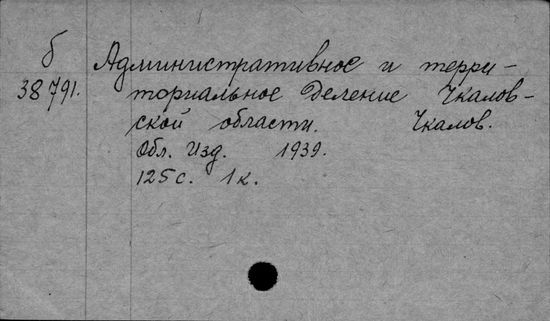 б Административное и терри-
38791. ториальное Деление Чкалов-
ской области. Чкалов.
Обл. Изд. 1939.
125 с. 1 к.